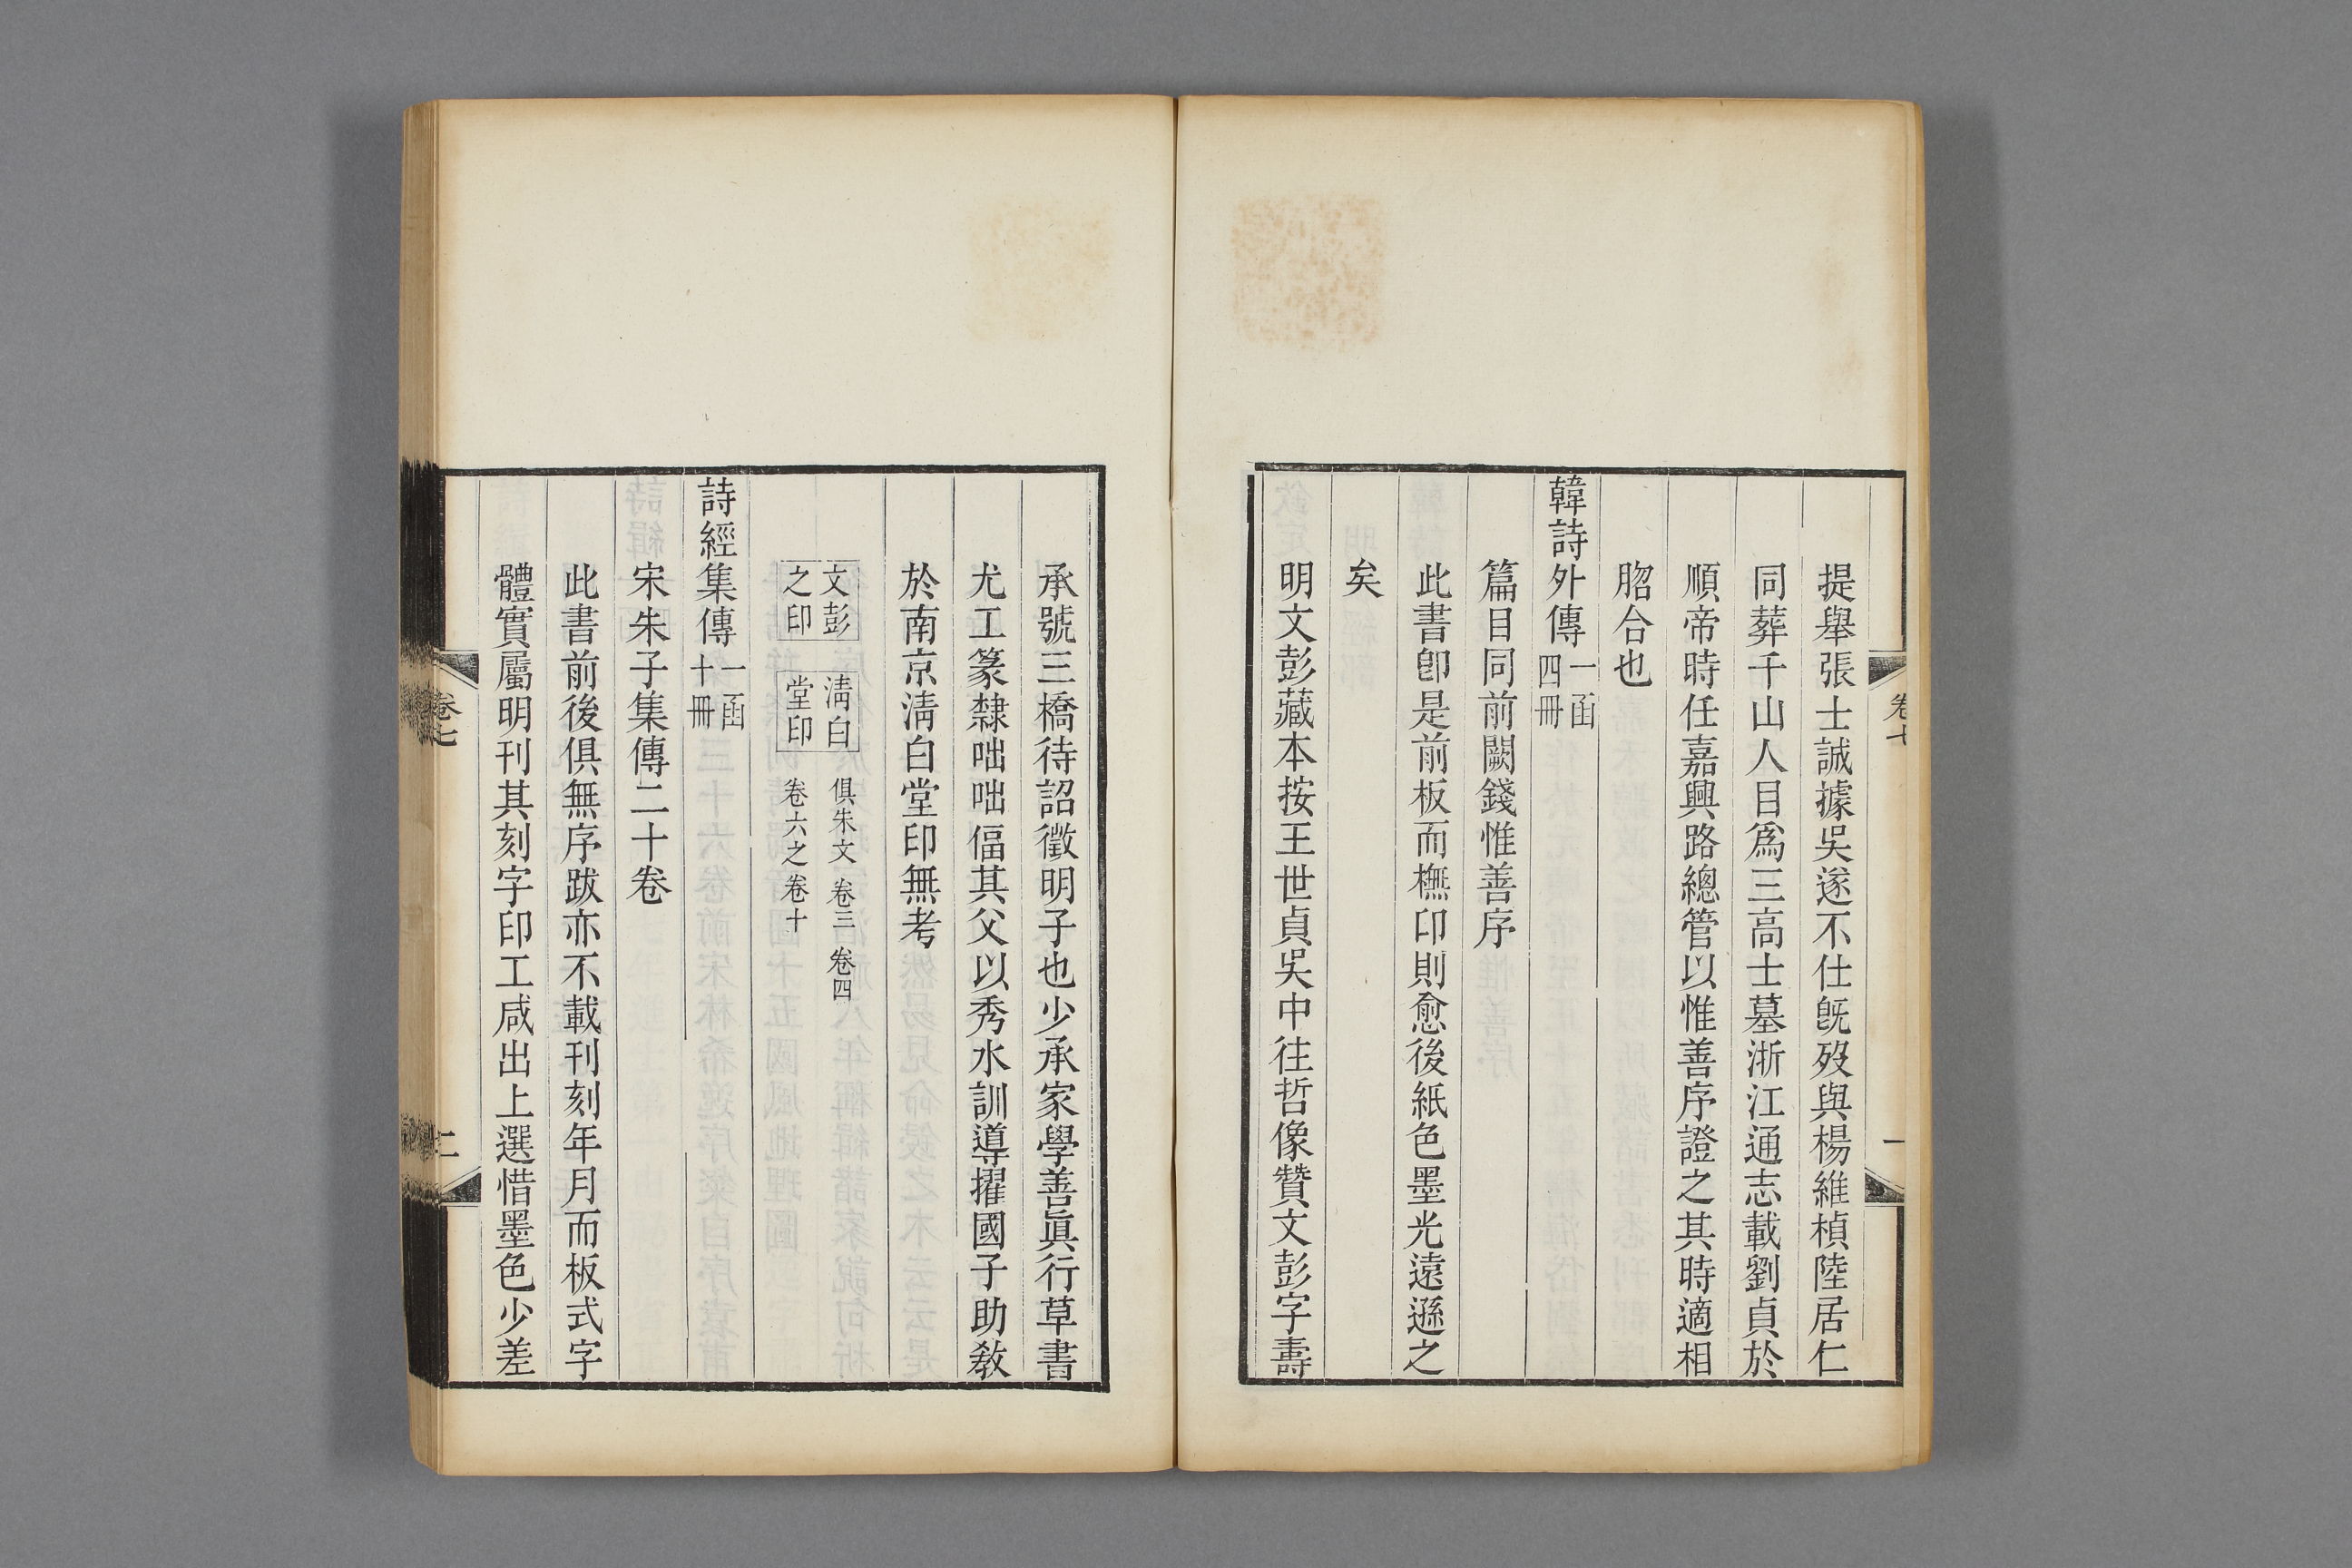 卷七
一
提舉張士誠據吳遂不仕旣歿與楊維楨陸居仁
同葬千山人目爲三高士墓浙江通志載劉貞於
順帝時任嘉興路總管以惟善序證之其時適相
脗合也
韓詩外傳一函四冊
篇目同前闕錢惟善序
此書卽是前板而橅印則愈後紙色墨光遠遜之
矣
明文彭藏本按王世貞吳中往哲像贊文彭字壽
承號三橋待詔徵明子也少承家學善眞行草書
尤工篆隸咄咄偪其父以秀水訓導擢國子助敎
於南京淸白堂印無考
文彭之印 淸白堂印 俱朱文 卷三 卷四 卷六之卷十
詩經集傳一函十冊
宋朱子集傳二十卷
此書前後俱無序跋亦不載刊刻年月而板式字
體實屬明刊其刻字印工咸出上選惜墨色少差
卷七
二